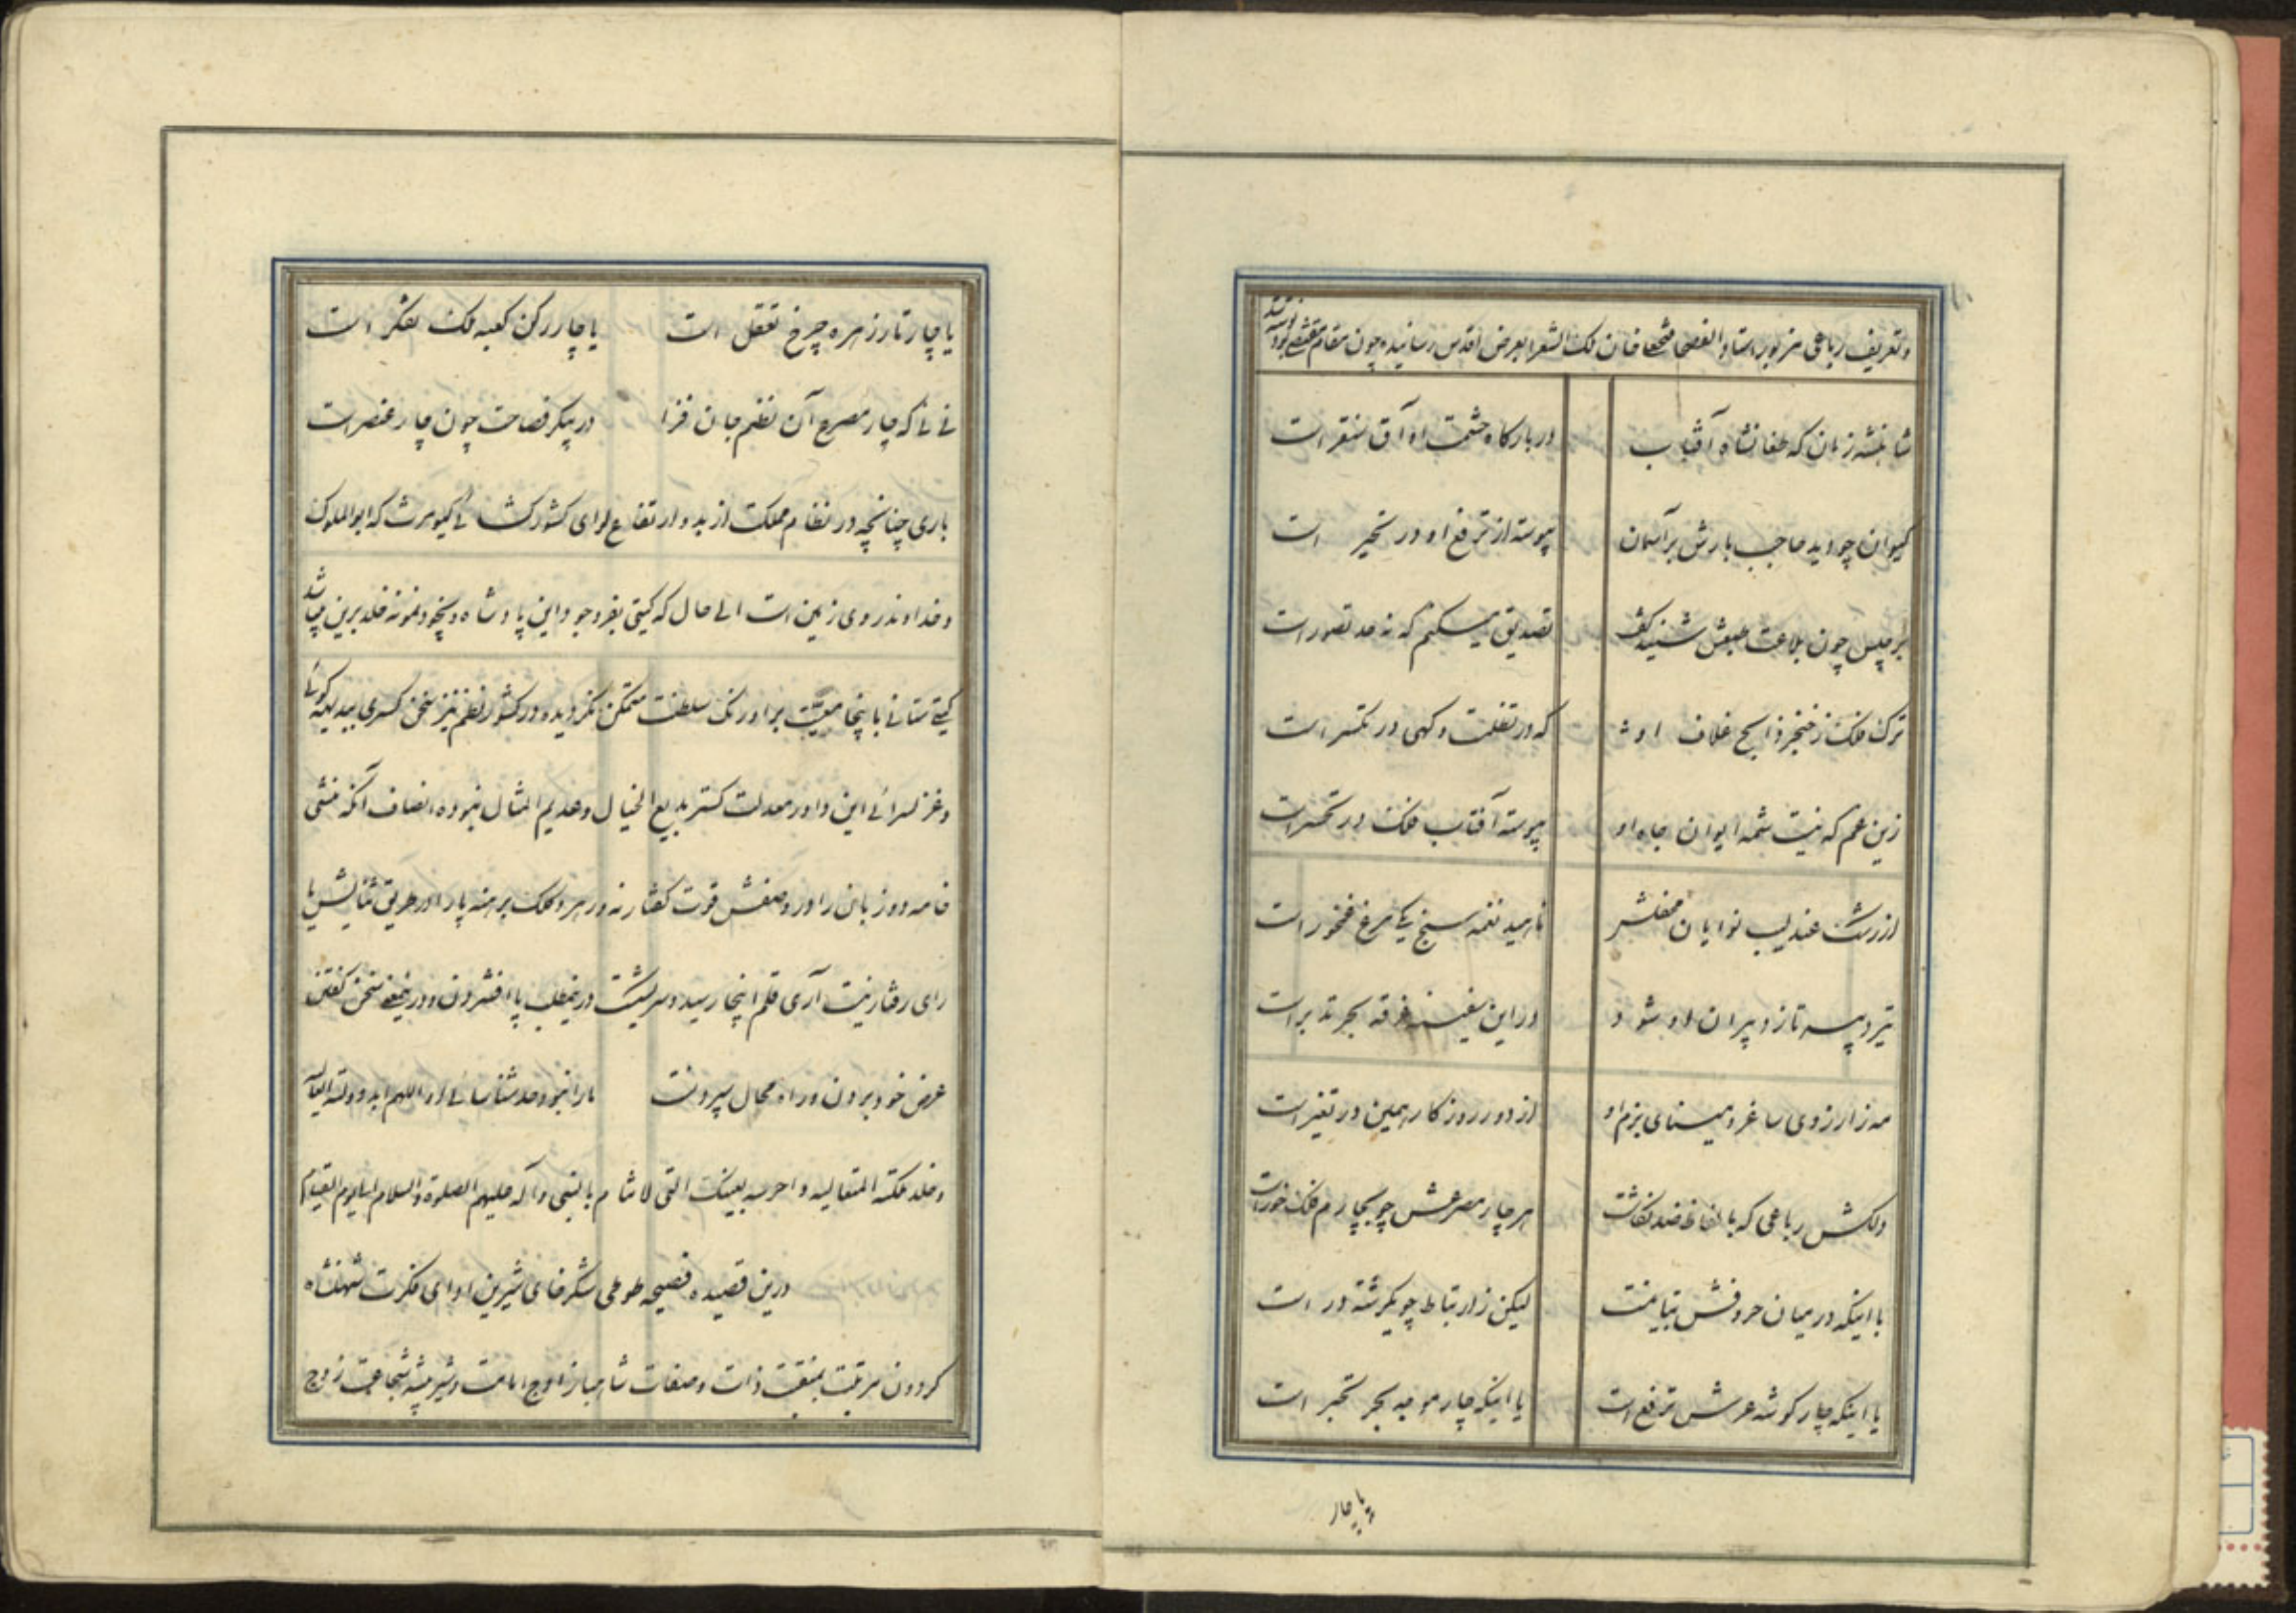 و تعریف رباعی مزبور استاد الفصحا فتحعلیخان ملک الشعرا بعرض اقدس رسانیده چون مقام مقتضی بود نوشته شد
شاهنشه زمان که طغانشاه آفتاب در بارگاه حشمت او آق سنقر است
کیوان چو دید حاجب بارش بر آسمان پیوسته از ترفع او در تحیر است
برجیس چون بلاغت طبعش شنید گفت تصدیق میکنم که نه حد تصور است
ترک فلک ز خنجر ذابح غلاف او که در تفلت و کهی در تکسر است
زین غم که نیست شمسه ایوان جاه او پیوسته آفتاب فلک در تحسر است
از رشک عندلیب نوایان محفلش ناهید نغمه سنج یکی مرغ فخور است
تیر دبیر تا ز دبیران او شود در این سفینه غرقه بحر تدبر است
مه ز ارزوی ساغر و مینای بزم او از دور روزکار همین در تغیر است
دلکش رباعی که بالفاظ ضد نکاشت هر چار مصرعش چو بچارم فلک خور است
با اینکه در میان حروفش تباینست لیکن ز ارتباط چو یکرشته در است
یا اینکه چار کوشه عرش ترفع است یا اینکه چار موجه بحر تبحر است
یا چار
یا چار تار زهره چرخ تعقل است یا چار رکن کعبه ملک تفکر است
نی نی که چار مصرع آن نظم جان فزا در پیکر فصاحت چون چار عنصر است
باری چنانچه در نظام مملکت از بدو ارتفاع لوای کشورکشائی کیومرث که ابوالملوک
و خداوند روی زمین است الی حال که کیتی بفر وجود این پادشاه ذیجود نمونه خلد برین میباشد
کیتی ستانی باینجا معیت بر اورنک سلطنت متمکن نکردیده در کشور نظم نیز سخن کستری ببدیهه کوئی
و غزلسرائی این داور معدلت کستر بدیع الخیال و عدیم المثال نبوده انصاف آنکه منشی
خامه دو زبان را در وصفش قوت کفتار نه و رهرو کلک برهنه پا را در طریق ثنایش یا
رای رفتار نیست آری قلم اینجا رسید و سر بشکست در ینمطلب پا افشردن و در ینمعنی سخن کفتن
عرض خود بردن و راه محال سپردنست ما را نبود حد شناسائی او اللهم ابد دولته العالیه
و خلد مملکته المتعالیه و احرسه بعینک التی لا تنام بالنبی و آله علیهم الصلوة و السلام الی یوم القیام
درین قصیده فصیحه طوطی شکرخای شیرین ادای فکرت شهنشاه
کردون مرتبت بمنقبت ذات و صفات شاهباز اوج امامت و شیر بیشه شجاعت زوج